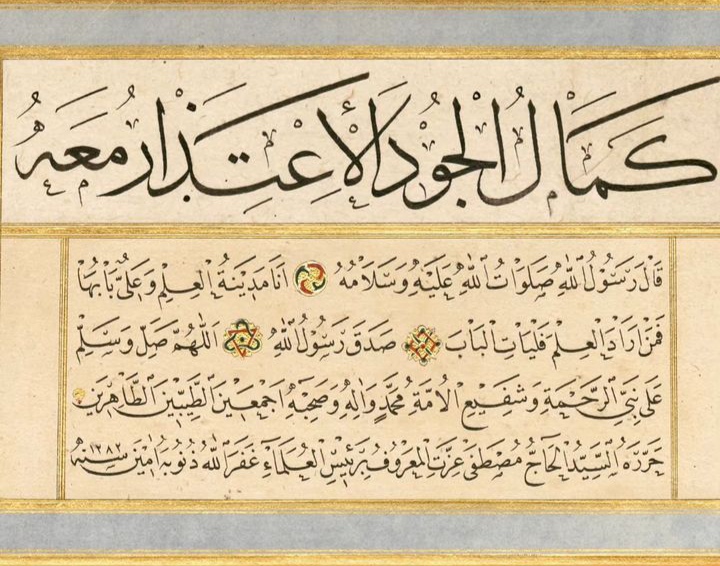 كَمَالُ الْجُودِ الْأِعْتِذَارُ مَعَهُ
قَالَ رَسُولُ اللّٰهِ صَلَوَاتُ اللّٰهِ عَلَيْهِ وَسَلَامُهُ اَنَا مَدِينَةُ الْعِلْمِ وَعَلِىٌّ بَابُهَا
فَمَنْ اَرَادَ الْعِلْمَ فَلْيَاْتِ الْبَابَ صَدَقَ رَسُولُ اللّٰهِ اَللّٰهُمَّ صَلِّ وَسَلِّمْ
عَلٰى نَبِىِّ الرَّحْمَةِ وَشَفِيعِ الْاُمَّةِ مُحَمَّدٍ وَاٰلِهِ وَصَحْبِهِ اَجْمَعِينَ الطَّيِّبِينَ الطَّاهِرِينَ
حَرَّرَهُ السَّيِّدُ الْحَاجُّ مُصْطَفٰى عِزَّتْ الْمَعْرُوفُ بِرَئِيسِ الْعُلَمَاءِ غَفَرَ اللّٰهُ ذُنُوبَهُ اٰمِينَ سنه ١٢٨٢